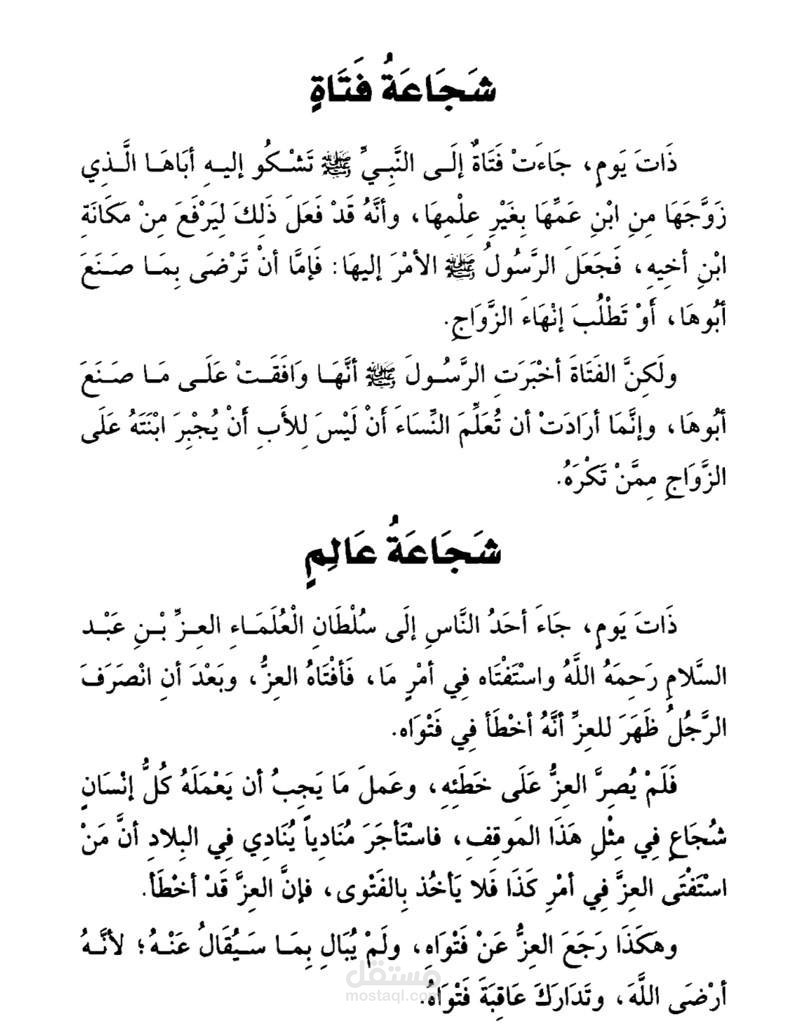 شَجَاعَةُ فَتَاةٍ
ذَاتَ يَومٍ، جَاءَتْ فَتَاةٌ إلَى النَّبِيِّ ﷺ تَشْكُو إليهِ أبَاهَا الَّذِي
زَوَّجَهَا مِنِ ابْنِ عَمِّهَا بِغَيْرِ عِلْمِهَا، وأنَّهُ قَدْ فَعَلَ ذَلِكَ لِيَرْفَعَ مِنْ مَكَانَةِ
ابْنِ أخِيهِ، فَجَعَلَ الرَّسُولُ ﷺ الأمْرَ إليهَا: فَإمَّا أنْ تَرْضَى بِمَا صَنَعَ
أبُوهَا، أَوْ تَطْلُبَ إنْهَاءَ الزَّوَاجِ.
ولَكِنَّ الفَتَاةَ أخْبَرَتِ الرَّسُولَ ﷺ أنَّهَا وَافَقَتْ عَلَى مَا صَنَعَ
أبُوهَا، وإنَّمَا أرَادَتْ أن تُعَلِّمَ النِّسَاءَ أَنْ لَيْسَ لِلأَبِ أَنْ يُجْبِرَ ابْنَتَهُ عَلَى
الزَّوَاجِ مِمَّنْ تَكْرَهُ.
شَجَاعَةُ عَالِمٍ
ذَاتَ يَومٍ، جَاءَ أحَدُ النَّاسِ إلَى سُلْطَانِ الْعُلَمَاءِ العِزِّ بْنِ عَبْد
السَّلامِ رَحِمَهُ اللَّهُ واسْتَفْتَاه فِي أمْرٍ مَا، فَأفْتَاهُ العِزُّ، وبَعْدَ أنِ انْصَرَفَ
الرَّجُلُ ظَهَرَ للعِزِّ أنَّهُ أخْطَأ فِي فَتْوَاه.
فَلَمْ يُصِرَّ العِزُّ عَلَى خَطَئِهِ، وعَملَ مَا يَجِبُ أن يَعْمَلَهُ كُلُّ إنْسَانٍ
شُجَاعٍ فِي مِثْلِ هَذَا المَوقِفِ، فاسْتَأجَرَ مُنَادِياً يُنَادِي فِي البِلادِ أنَّ مَنْ
اسْتَفْتَى العِزَّ فِي أمْرِ كَذَا فَلا يَأخُذ بِالفَتْوى، فإنَّ العِزَّ قَدْ أخْطَأ.
وهكَذَا رَجَعَ العِزُّ عَنْ فَتْوَاهِ، ولَمْ يُبَالِ بِمَا سَيُقَالُ عَنْهُ؛ لأنَّهُ
أرْضَى اللَّهَ، وتَدَارَكَ عَاقِبَةَ فَتْوَاهُ.
مستقل
mostaql.com